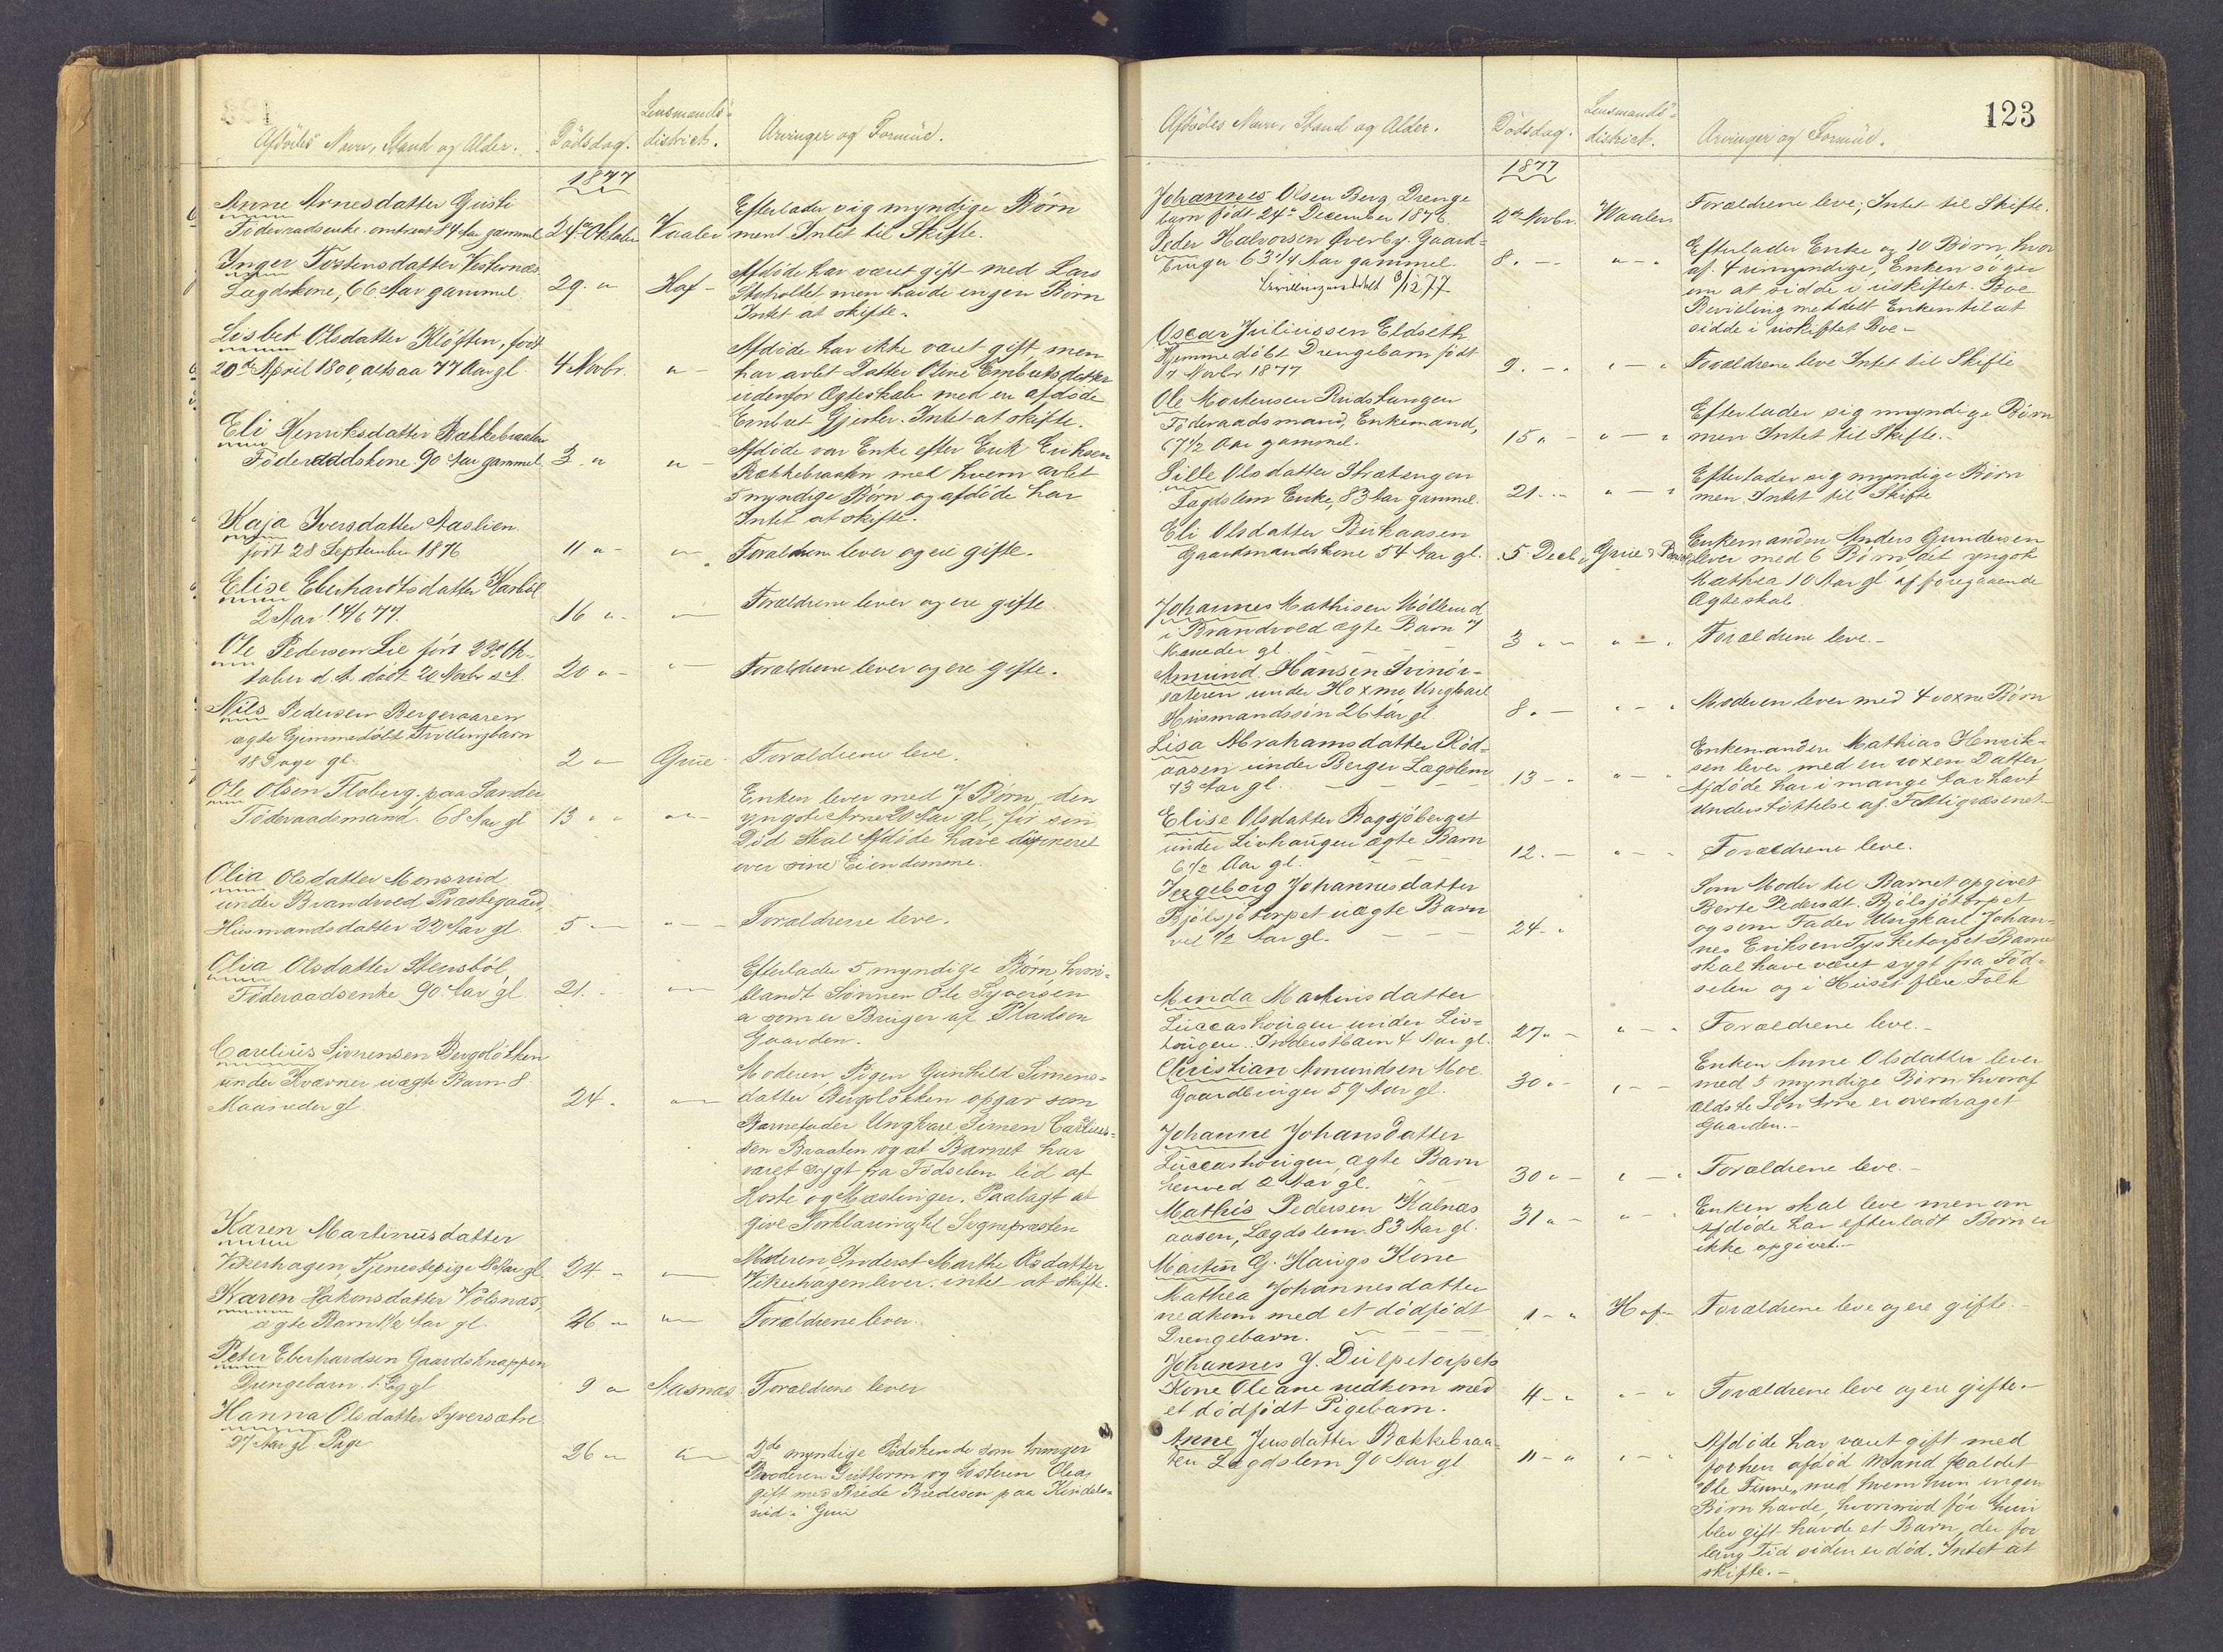 Afdödes Navn, Stand og Alder.
Dödsdag.
Lensmands-
district.
Arvinger og Formue.
1877
Anne Arnesdatter Gusli
Föderaadsenke omtrent 84 Aar gammel
24de Oktober
Vaaler
Efterlader sig myndige Børn
ment Intet til Skifte.
Inger Tostensdatter Vesternæs
Lægdskone, 66 Aar gammel
29. "
Hof -
Afdøde har været gift med Lars
men havde ingen Børn
Intet at skifte.
Lisbet Olsdatter Kløften, født
20de April 1800, altsaa 77 Aar gl.
4 Novbr.
" -
Afdøde har ikke været gift, men
har avlet Datter Oline Embretsdatter
udenfor Ægteskab med en afdøde
Embret Gjester. Intet at skifte.
Eli Henriksdatter Bækkebraaten
Föderaadskone 90 Aar gammel
3. "
" -
Afdøde var Enke efter Erik Eriksen
Bækkebraaten med hvem avlet
5 myndige Børn og afdøde har
Intet at skifte.
Kaja Iversdatter Aaslien
født 28 September 1876
11 " -
" -
Forældrene lever og ere gifte.
Elise Eberhardtsdatter Karböl
2 Aar 14/6 77.
16 " -
" -
Forældrene lever og ere gifte.
Ole Pedersen Lie født 23de Ok-
tober d. A. död 20 Novbr s. A.
20 " -
" -
Forældrene lever og ere gifte.
Nils Pedersen Bergeraaren
ægte hjemmedøbt Tvillingbarn
18 Dage gl.
2 " -
Grue -
Forældrene leve.
Ole Olsen Floberg paa Sander
Föderaadsmand. 68 Aar gl
13 " "
" -
Enken lever med 7 Børn, den
yngste Arne 20 Aar gl, før sin
Död skal Afdøde have disponeret
over sine Eiendomme.
Olia Olsdatter Monsrud
under Brandvold Præstegaard,
Husmandsdatter 22 Aar gl.
5 " -
" -
Forældrene leve.
Olia Olsdatter Stensböl,
Föderaadsenke 90 Aar gl
21. -
" -
Efterlader 5 myndige Børn hvori-
blandt Sønnen Ole Syversen
a som er Bruger af Pladsen
Gaarden.
Carelius Simensen Bergoløkken
under Kværner uægte Barn 8
Maaneder gl
24. "
" -
Moderen, Pigen Gunhild Simens-
datter Bergoløkken opgav som
Barnefader Ungkarl Simen Carelius-
sen Braaten og at Barnet har
været sygt fra Fødselen lid af
Hoste og Mæslinger. Paalagt at
give Forklaring til Sognepræsten
Karen Martinusdatter
Vikerhagen, Tjenestepige 18 Aar gl
24 -
" -
Moderen, Inderst Marthe Olsdatter
Vikerhagen lever. intet at skifte.
Karen Hakonsdatter Volsnæs,
ægte Barn 1/2 Aar gl.
26. "
" -
Forældrene lever.
Peter Eberhardsen Gaardsknappen
Drengebarn 1 Dag gl
9 "
Aasnæs
Forældrene lever
Hanna Olsdatter Syversætre
27 Aar gl Pige
26 "
" -
2de myndige Södskende som Arvinger
Broderen Guttorm og Søsteren Olea
gift med Brede Bredesen paa Kindals-
rud i Grue
123
Afdödes Navn, Stand og Alder.
Dödsdag.
Lensmands-
district.
Arvinger og Formue.
1877
Johannes Olsen Berg, Drenge
barn født 24de December 1876
2den Novbr.
Vaaler
Forældrene leve; Intet til Skifte.
Peder Halvorsen Øverby. Gaard-
bruger 63 1/4 Aar gammel.
8. -
" - "
Efterlader Enke og 10 Børn, hvor
af 4 umyndige, Enken søger
om at sidde i uskiftet Boe
Bevilling meddelt Enken til at
sidde i uskiftet Boe -
3/12 77
Oscar Juliussen Eldseth
Hjemmedöbt Drengebarn født
7 Novbr 1877
9. - "
" - "
Forældrene leve Intet til Skifte
Ole Mortensen Rudstungen
Föderaadsmand, Enkemand,
67 1/2 Aar gammel.
15 " -
" - "
Efterlader sig myndige Børn
men Intet til Skifte. -
Sille Olsdatter Stratengen
Lægdslem Enke, 83 Aar gammel.
21 - "
" - "
Efterlader sig myndige Børn
men Intet til Skifte
Eli Olsdatter Birkaasen
Gaardmandskone 54 Aar gl.
5 Decbr.
Grue
Enkemanden Anders Gundersen
lever med 6 Børn, det yngste
Mathea 10 Aar gl af foregaaende
Ægteskab.
Johannes Mathisen Möllerud
i Brandvold ægte Barn 7
Maaneder gl.
3 " -
" - "
Forældrene leve. -
Amund Hansen Svinör-
sæteren under Hoxmo, Ungkarl
Husmandssön 26 Aar gl
8. -
" - "
Moderen lever med 4 voxne Børn
Lisa Abrahamsdatter Röd-
aasen under Berger Lægdslem
73 Aar gl.
13 - "
" - "
Enkemanden Mathias Henrik-
sen lever med en voxen Datter,
Afdøde har i mange Aar havt
Understøttelse af Fattigvæsenet
Elise Olsdatter Bagsjöberget
under Livhaugen ægte Barn
6 1/2 Aar gl.
12. -
" - "
Forældrene leve.
Ingeborg Johannesdatter
Bjölsjötorpet uægte Barn
vel 1/2 Aar gl.
24 - "
Som Moder til Barnet opgivet
Berte Pedersdt. Bjölsjötorpet
og som Fader Ungkarl Johan-
nes Eriksen Tysketorpet Barnet
skal have været sygt fra Föd-
selen og i Huset flere Folk
Minda Martinsdatter
Luccashougen under Liv-
hougen. Inderstbarn 4 Aar gl.
27 " -
" - "
Forældrene leve. -
Christian Amundsen Moe
Gaardbruger 59 Aar gl.
30 " -
" - -
Enken Anne Olsdatter lever
med 5 myndige Børn hvoraf
ældste Søn Arne er overdraget
Gaarden. -
Johanne Johansdatter
Luccashougen, ægte Barn
henved 2 Aar gl.
30 " -
" - "
Forældrene leve. -
Mathis Pedersen Kalnæs
aasen, Lægdslem 83 Aar gl.
31 " -
" - "
Enken skal leve men om
Afdøde har efterladt Børn er
ikke opgivet. -
Martin G. Haugs Kone
Mathea Johannesdatter
nedkom med et dödfødt
Drengebarn.
1 - "
Hof -
Forældrene leve og ere gifte. -
Johannes J. Dulpetorpets
Kone Oleane nedkom med
et dödfødt Pigebarn.
4 - "
" - "
Forældrene leve og ere gifte. -
Anne Jensdatter Bækkebraa-
ten Lægdslem 90 Aar gl
11 - "
" - "
Afdøde har været gift med
forhen afdöd Mand kaldet
"Ole Finne" med hvem hun ingen
Børn havde, hvorimod før hun
blev gift havde et Barn, der for
lang Tid siden er död. Intet at
skifte. -